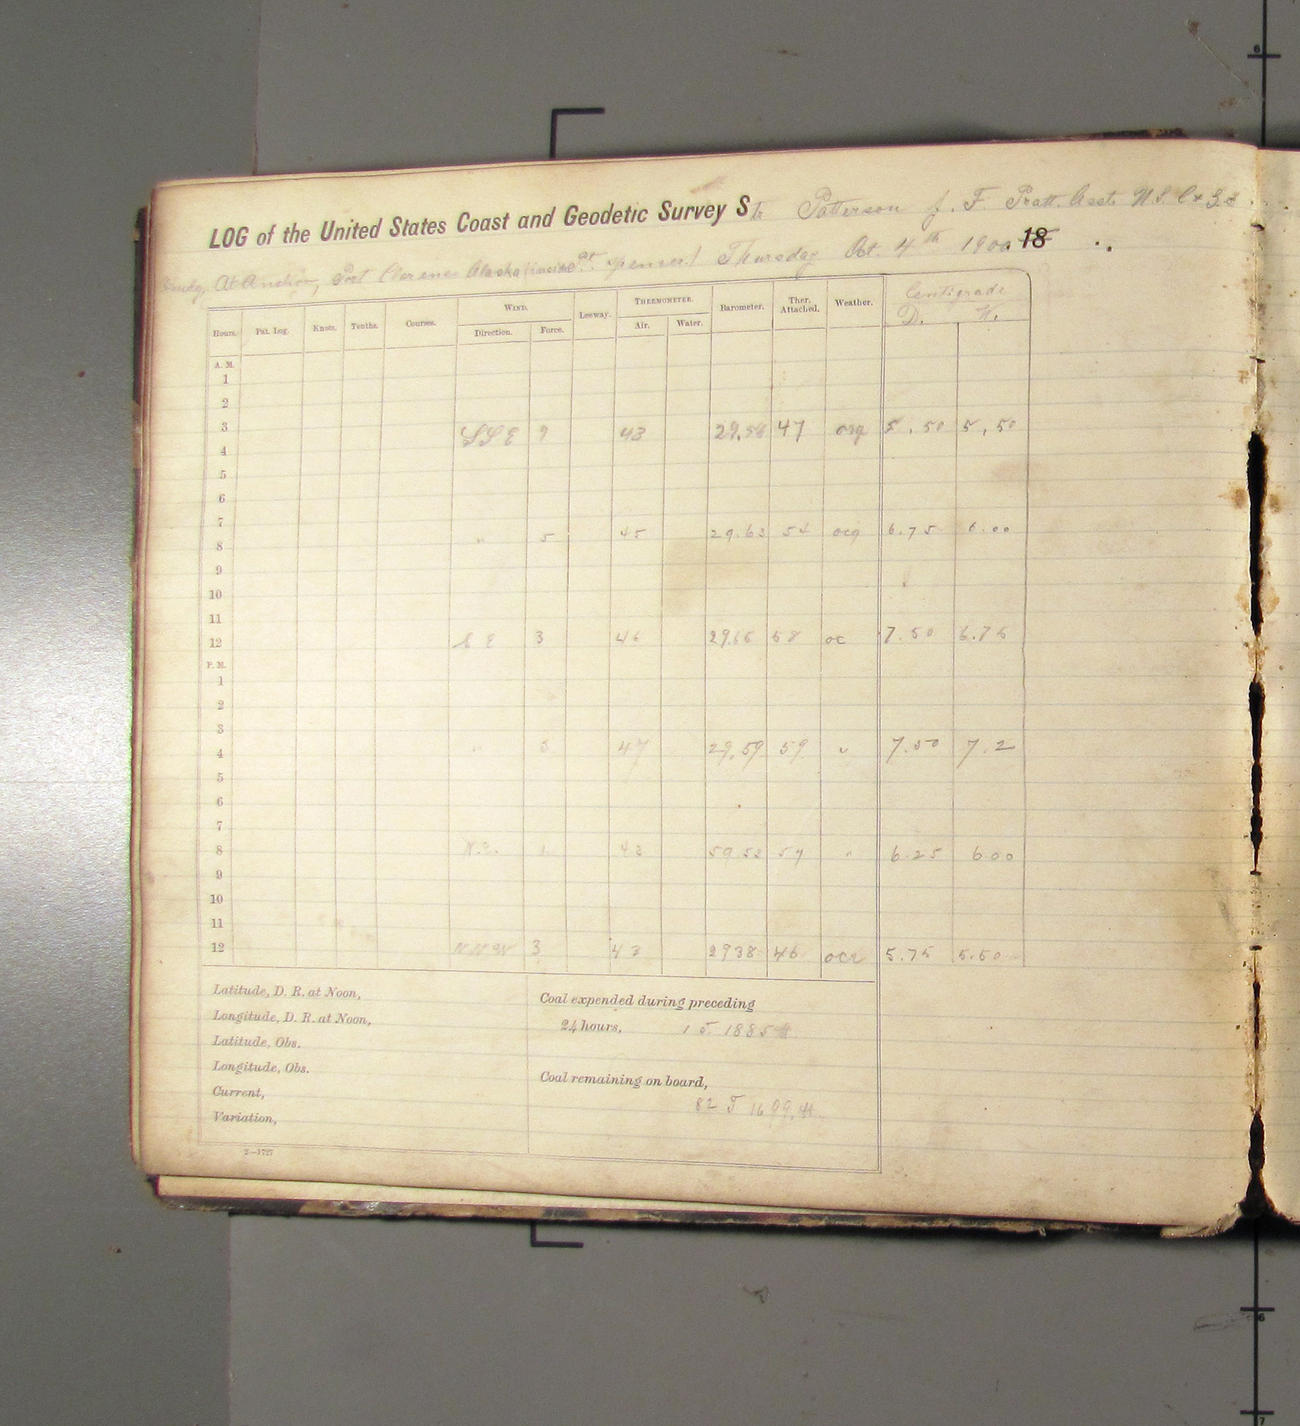 LOG of the United States Coast and Geodetic Survey Str Patterson J. F. Pratt. Asst. U.S. C & G.S.
At Anchor, Port Clarence Alaska at Spencer Thursday Oct. 4th 1900 18
Centigrade
Hours. Pat. Log. Knots. Tenths. Courses. WIND. Leeway. THERMOMETER. Barometer. Ther. Attached. Weather. D. W.
Direction. Force. Air. Water.
A. M.
1
2
3
4 SSE 9 43 29.58 47 org 5.50 5.50
5
6
7
8 " 5 45 29.63 54 ocg 6.75 6.00
9
10
11
12 SE 3 46 29.65 58 oc 7.50 6.75
P. M.
1
2
3
4 " 3 47 29.59 59 " 7.50 7.2
5
6
7
8 N.E. 1 43 59.53 57 " 6.25 600
9
10
11
12 NNW 3 43 2938 46 ocr 5.75 5.50
Latitude, D. R. at Noon,
Longitude, D. R. at Noon,
Latitude, Obs.
Longitude, Obs.
Current,
Variation,
Coal expended during preceding
24 hours, 1 T. 1885 #
Coal remaining on board,
82 T 1699 #
2—1727
6
6
7